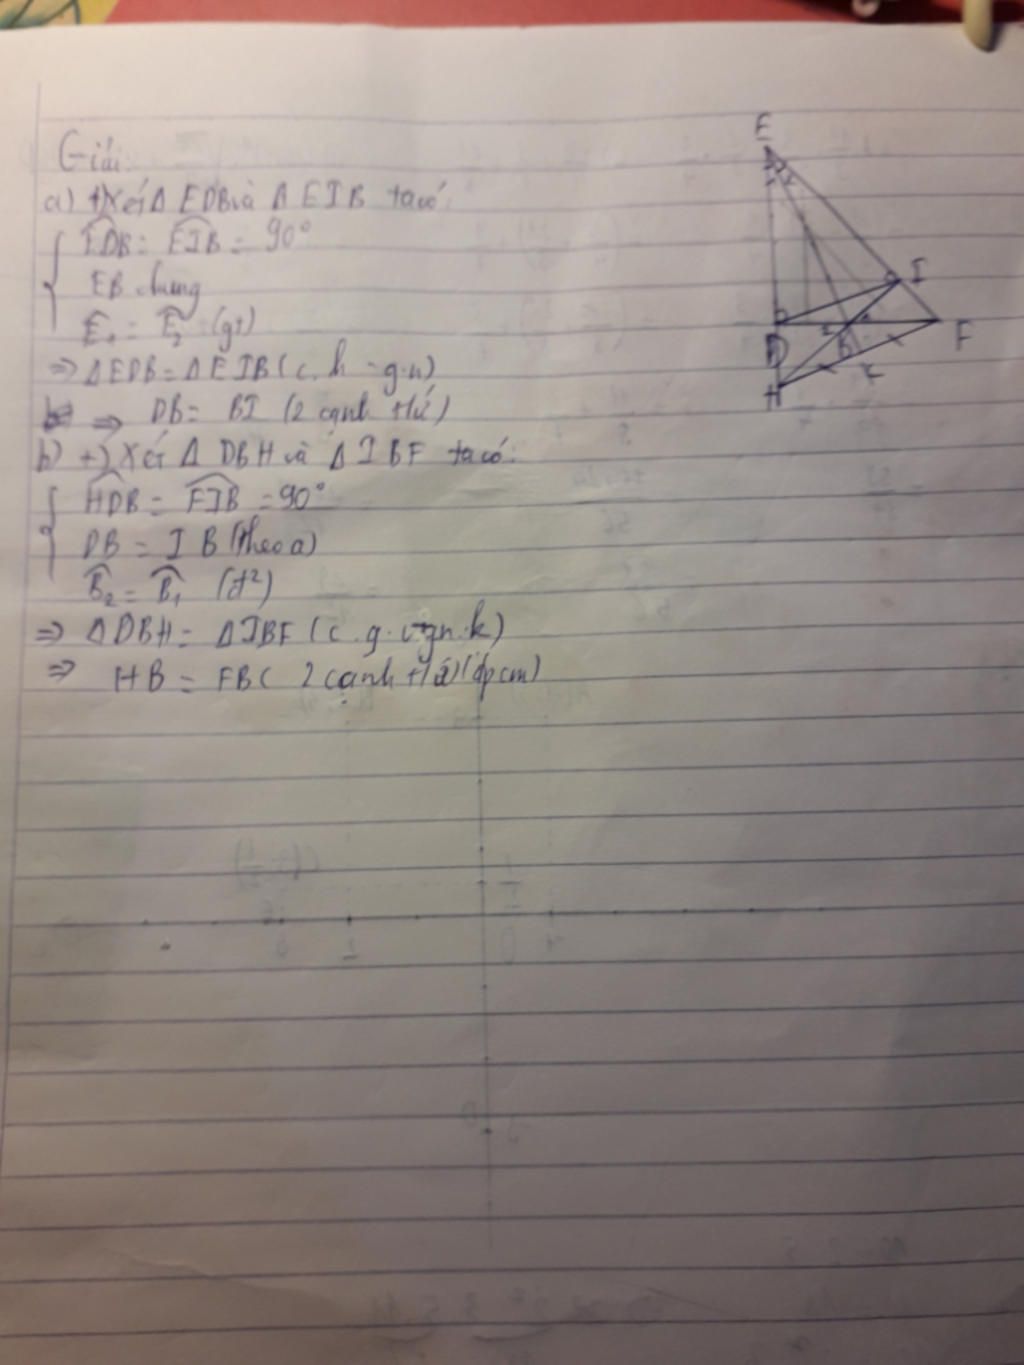 Giải:
a) +) Xét Δ EDB và Δ EIB ta có:
EDB = EIB = 90°
EB chung
E₁ = E₂ (gt)
=> ΔEDB = ΔEIB (c.h - g.n)
=> DB = BI (2 cạnh t/ứ)
b) +) Xét Δ DBH và Δ IBF ta có:
HDB = FIB = 90°
DB = IB (theo a)
B₂ = B₁ (đ²)
=> ΔDBH = ΔIBF (c.g.v-gn.k)
=> HB = FB ( 2 cạnh t/ứ) (đpcm)
E
I
D
B
F
H
K